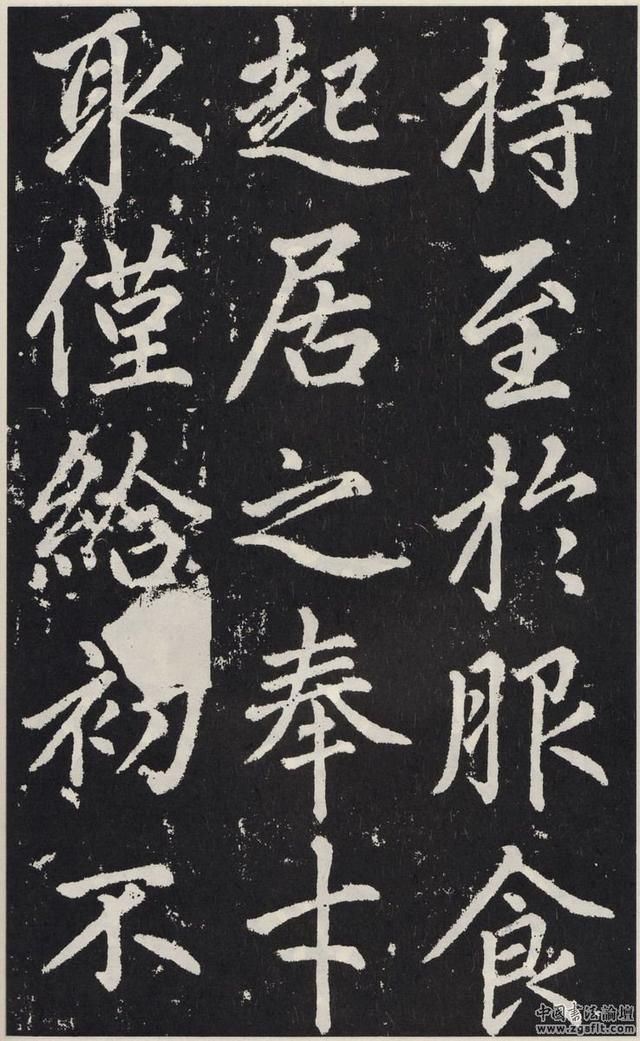 持至於服食
起居之奉才
取僅給初不
中国書法論壇
www.zgsflt.com